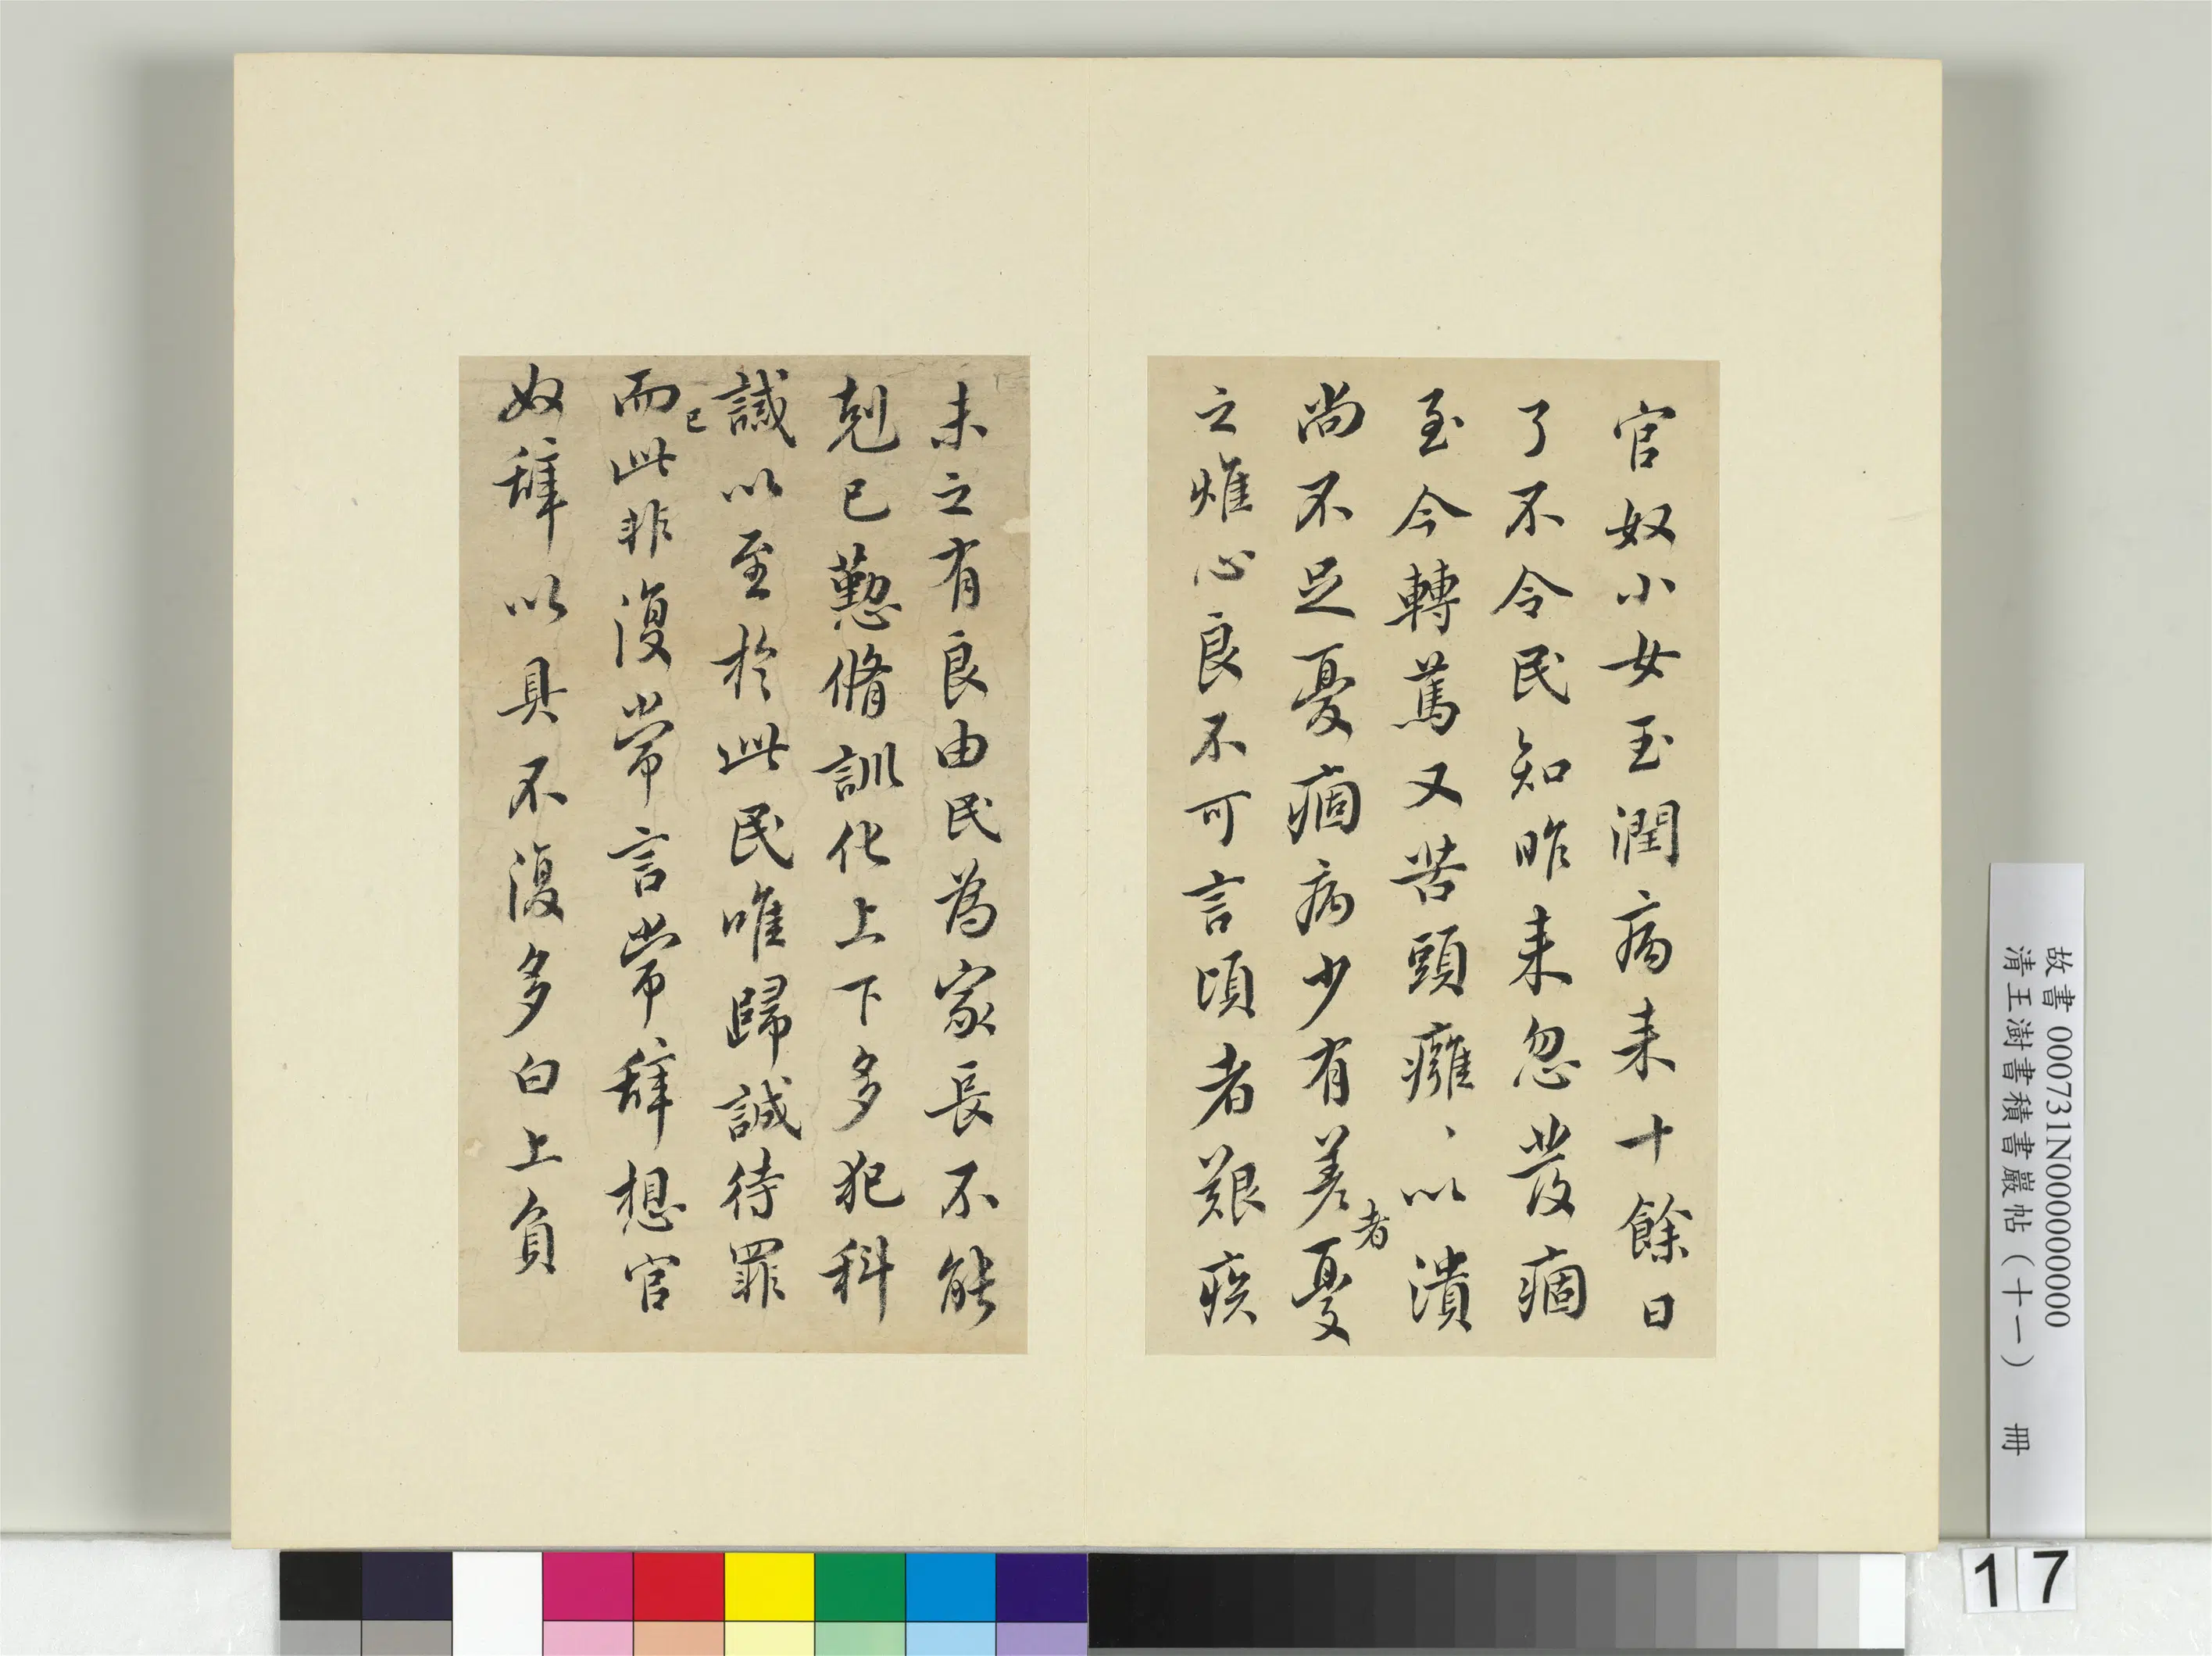 官奴小女玉潤病来十餘日
了不令民知昨来忽發痼
至今轉篤又苦頭癰、以潰
尚不足憂痼病少有差者憂
之燋心良不可言頃者艱疾
未之有良由民為家長不能
剋己懃脩訓化上下多犯科
誡以至於此民唯歸誠待罪
而已此非復常言常辭想官
奴辭以具不復多白上負
故書 000731N000000000
清王澍書積書巖帖（十一） 冊
17